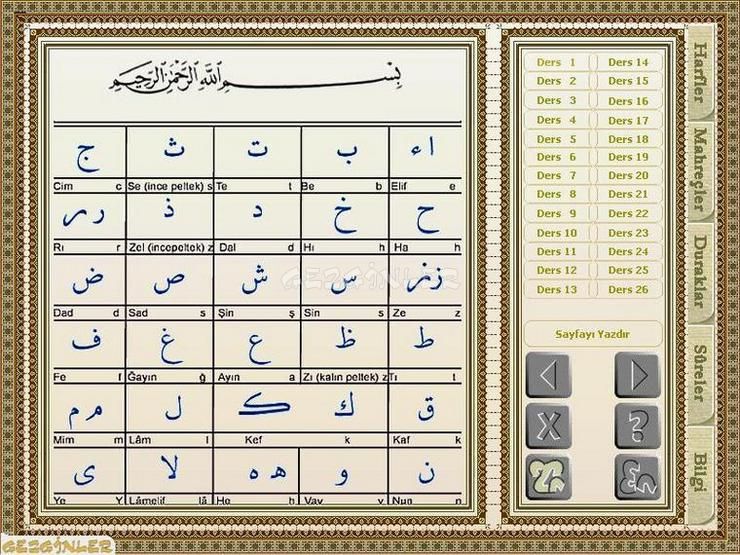 بِسْمِ اللهِ الرَّحْمٰنِ الرَّحِيمِ
ا ء ب ت ث ج
Elif e Be b Te t Se (ince peltek) s Cim c
ح خ د ذ ر ر
Ha h Hı h Dal d Zel (incepeltek) z Rı r
ز ز س ش ص ض
Ze z Sin s Şin ş Sad s Dad d
ط ظ ع غ ف
Tı t Zı (kalın peltek) z Ayın a Ğayın ğ Fe f
ق ك ک ل م م
Kaf k Kef k Lâm l Mim m
ن و ه ه لا ى
Nun n Vav v He h Lâmelif lâ Ye Y
GEZGİNLER
Ders 1 Ders 14
Ders 2 Ders 15
Ders 3 Ders 16
Ders 4 Ders 17
Ders 5 Ders 18
Ders 6 Ders 19
Ders 7 Ders 20
Ders 8 Ders 21
Ders 9 Ders 22
Ders 10 Ders 23
Ders 11 Ders 24
Ders 12 Ders 25
Ders 13 Ders 26
Sayfayı Yazdır
X ?
Harfler
Mahreçler
Duraklar
Sûreler
Bilgi
GEZGİNLER